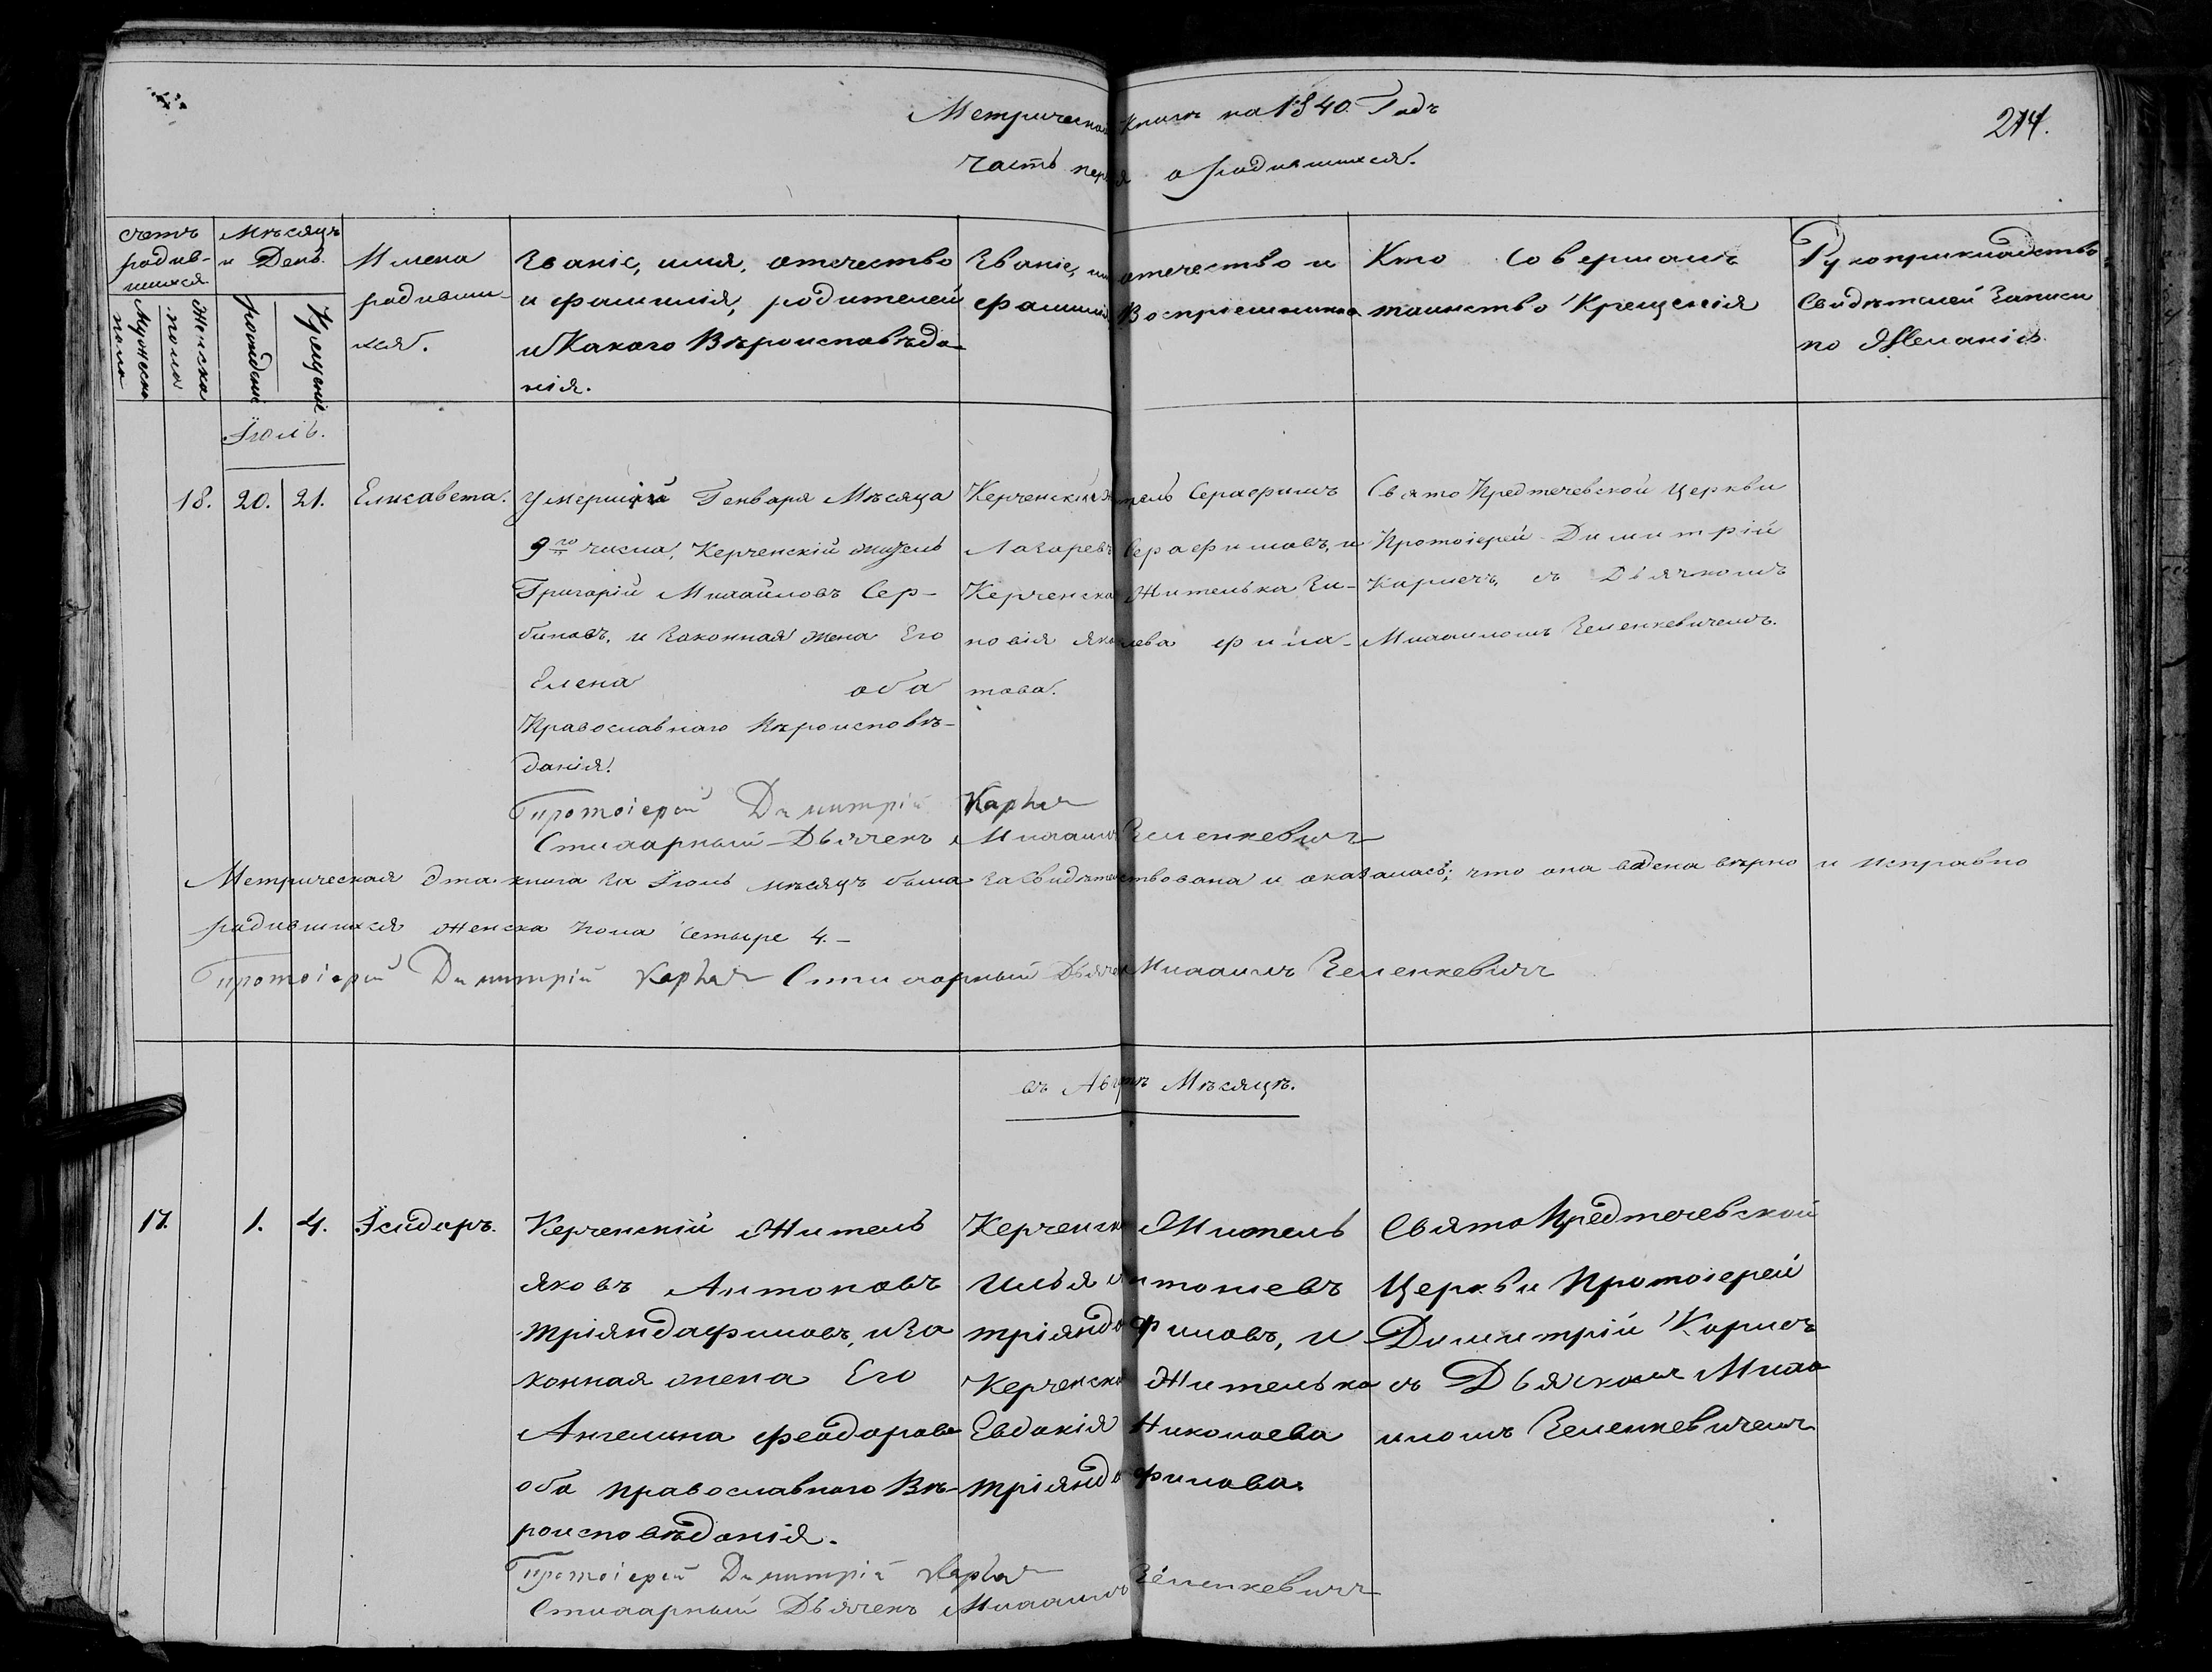 Метрической Книги на 1840. Годъ
214.
Часть первая о родившихся.
счетъ родив-шихся
Мужеска пола
Женска пола
Мѣсяцъ и День.
рожденія
Крещенія
Имена родивши-хся.
Званіе, имя, отечество
и фамилія, родителей
и Какого Вѣроисповѣда-
нія.
Званіе, имя отечество и
фамилія Воспріемника
Кто Совершалъ
таинство Крещенія
Рукоприкладство
Свидѣтелей Записи
по Желанію
Іюль.
18. 20. 21. Елисавета.
Умершій Генваря Мѣсяца
9го числа, Керченскій житель
Григорій Михайловъ Сер-
биновъ, и Законная жена Его
Елена оба
Православнаго Вѣроисповѣ-
данія.
Керченскій житель Серафимъ
Лазаревъ Серафимовъ, и
Керченска Жителька Зи-
новія Яковлева фила-
това.
Свято Предтечевской Церкви
Протоіерей Димитрій
Карпечъ, съ Дьячкомъ
Михаиломъ Зеленкевичемъ.
Протоіерей Димитрій
Стихарный Дьячекъ Михаилъ Зеленкевичъ
Метрическая эта книга За Іюль мѣсяцъ была Засвидѣтельствована и оказалась; что она ведена вѣрно и исправно
родившихся женска пола Четыре 4.-
Протоіерей Димитрій Стихарный Дьячекъ Михаилъ Зеленкевичъ
въ Августѣ Мѣсяцѣ.
17. 1. 4. Ісидоръ.
Керченскій Житель
Яковъ Антоновъ
тріяндафиловъ, и За
конная жена Его
Ангелина феодорова
оба православнаго Вѣ-
роисповѣданія.
Керченскі Житель
Илья Антоніевъ
тріяндафиловъ, и
Керченска Жителька
Евдокія Николаева
тріяндафилова.
Свято Предтечевской
Церкви Протоіерей
Димитрій Карпечъ
съ Дьячкомъ Миха
иломъ Зеленкевичемъ
Протоіерей Димитрій
Стихарный Дьячекъ Михаилъ Зеленкевичъ